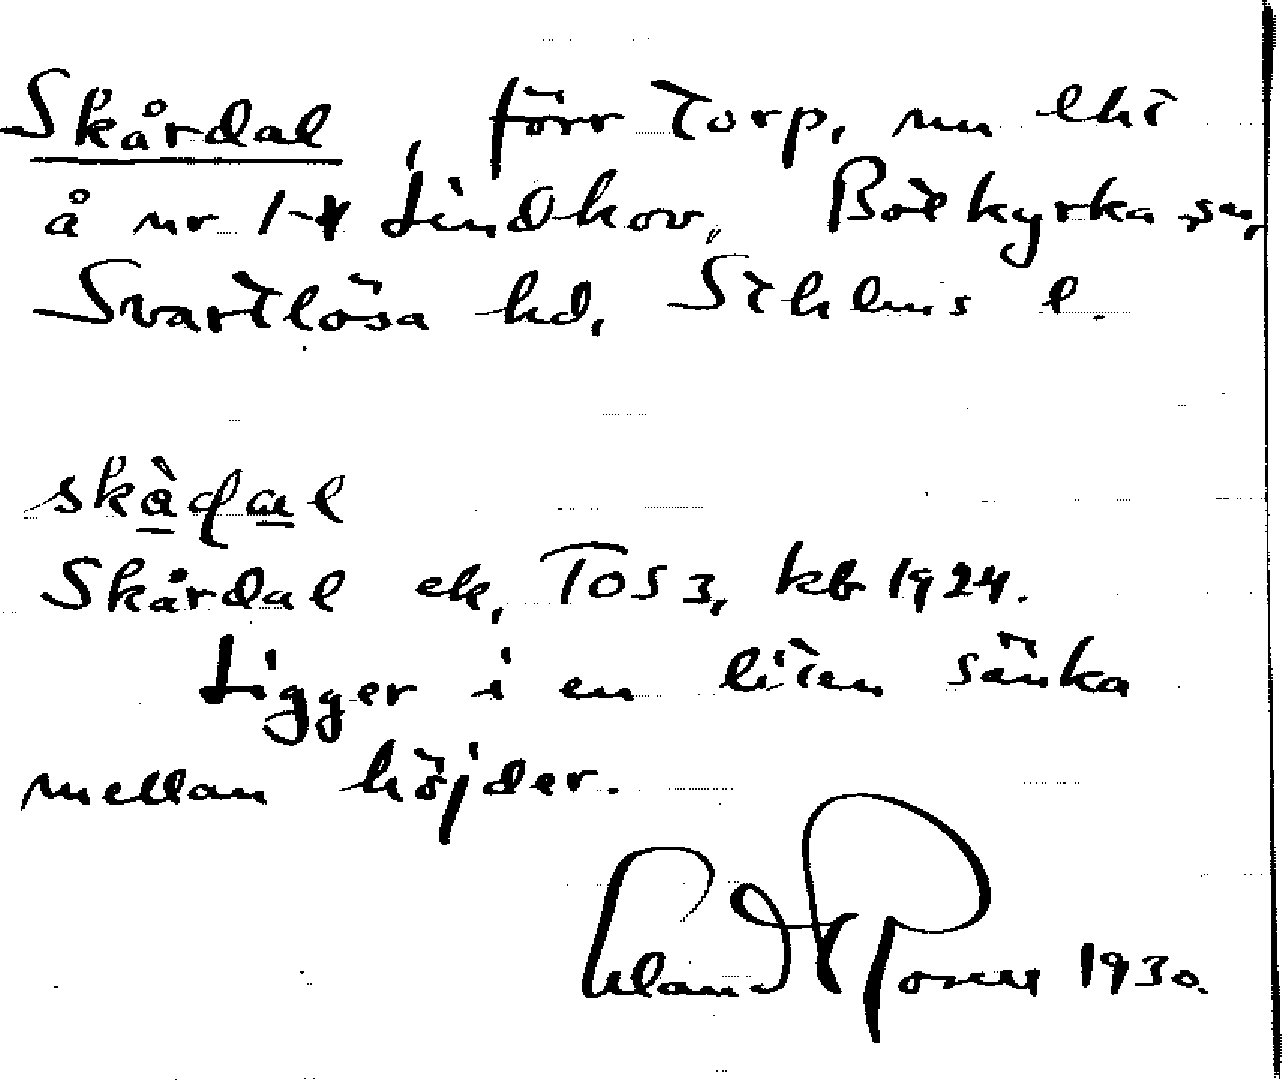 Skårdal, förr torp, nu lht
å nr 1-4 Lindhov, Botkyrka sn,
Svartlösa hd, Sthlms l.
skådal
Skårdal ek, TOS 3, kb 1924.
Ligger i en liten sänka
mellan höjder.
Roser 1930.